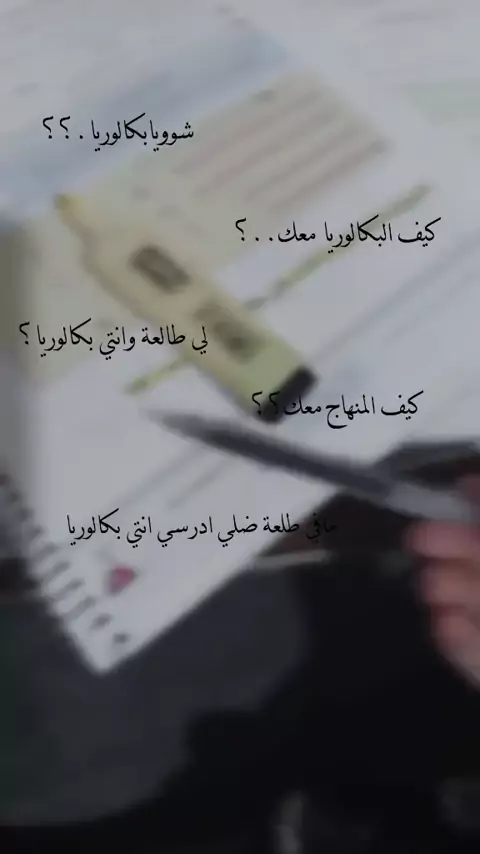 شوويابكالوريا . ؟ ؟
كيف البكالوريا معك . . ؟
لي طالعة وانتي بكالوريا ؟
كيف المنهاج معك؟ ؟
مافي طلعة ضلي ادرسي انتي بكالوريا